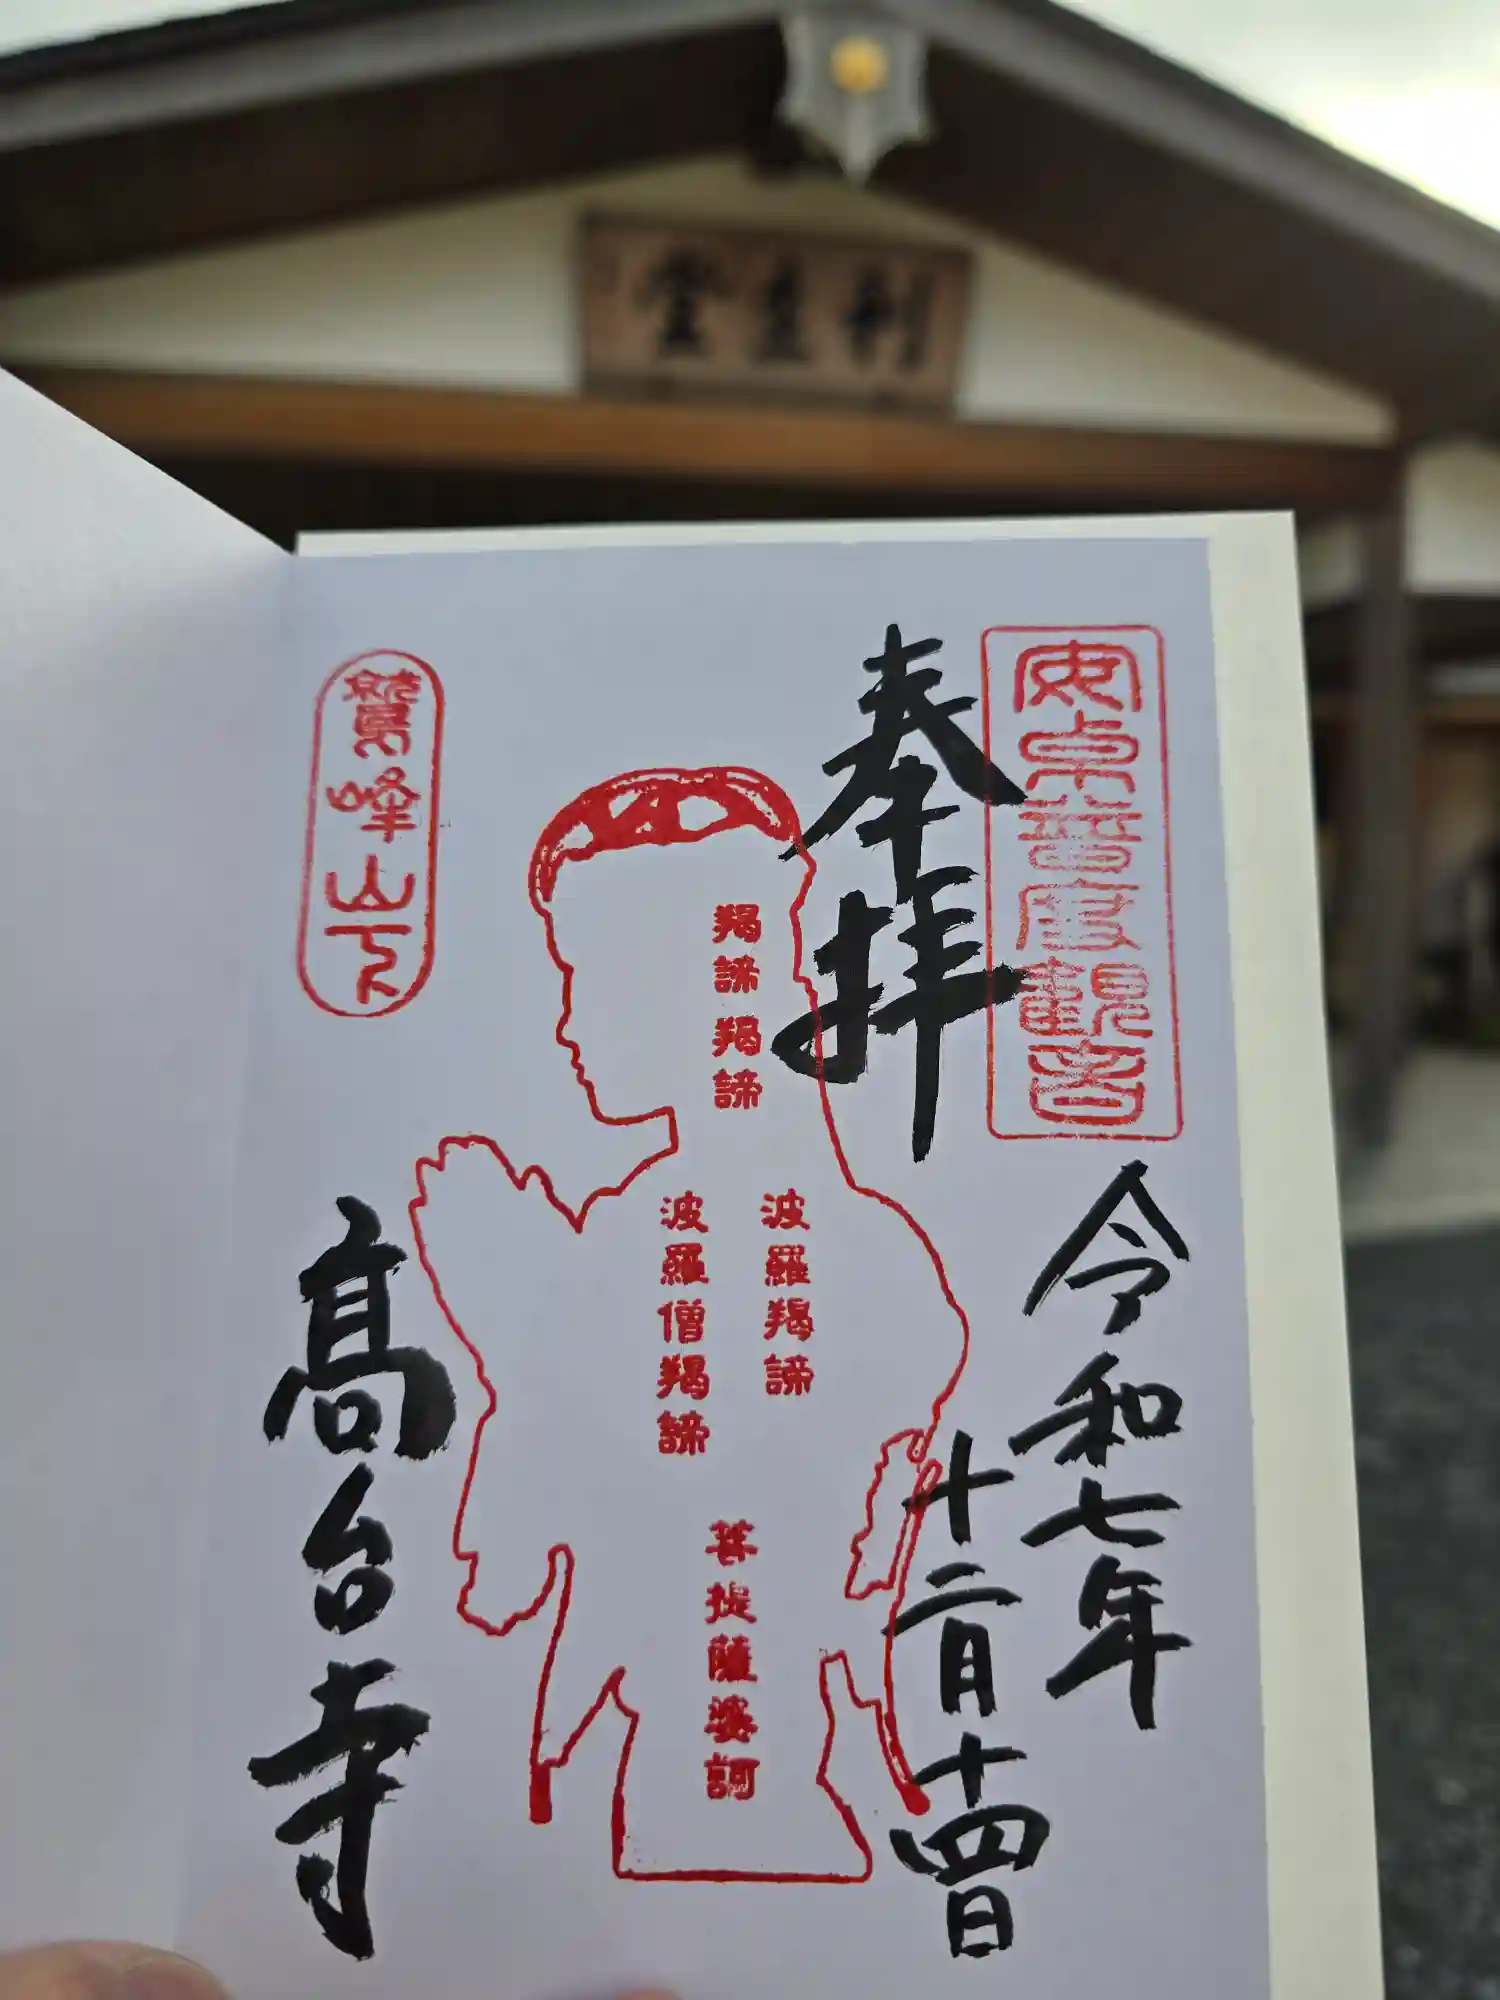 利生堂
安卓普度観音
奉拝
令和七年
十二月十四日
羯諦羯諦
波羅羯諦
波羅僧羯諦
菩提薩婆訶
鷲峰山下
髙台寺